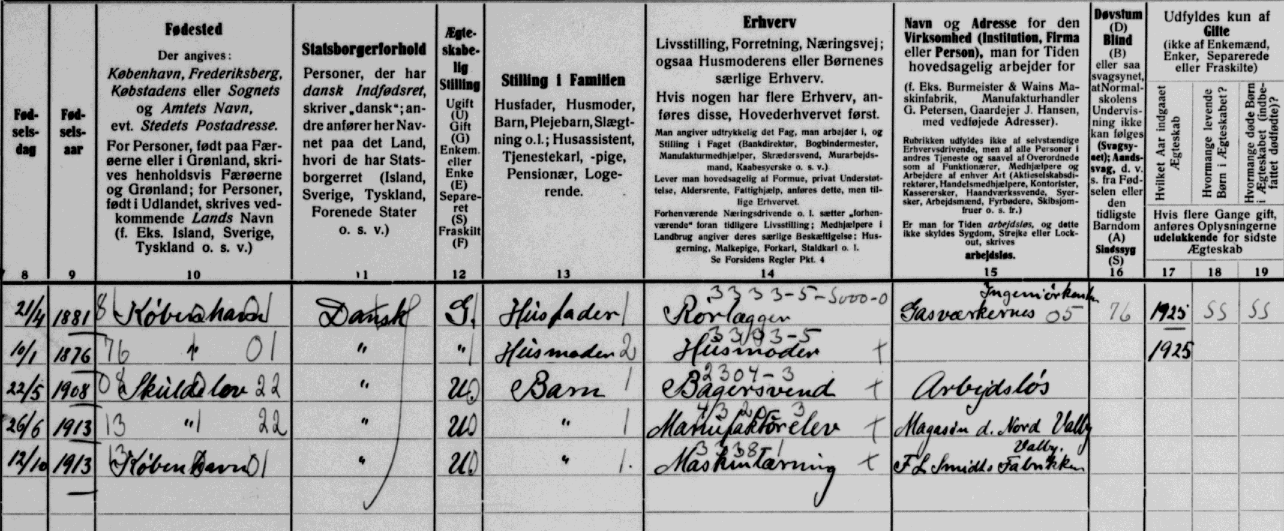 Fødselsdag
8
Fødselsaar
9
Fødested
Der angives:
København, Frederiksberg,
Købstadens eller Sognets
og Amtets Navn,
evt. Stedets Postadresse.
For Personer, født paa Færøerne eller i Grønland, skrives henholdsvis Færøerne
og Grønland; for Personer,
født i Udlandet, skrives vedkommende Lands Navn
(f. Eks. Island, Sverige,
Tyskland o. s. v.)
10
Statsborgerforhold
Personer, der har
dansk Indfødsret,
skriver „dansk“; andre anfører her Navnet paa det Land,
hvori de har Statsborgerret (Island,
Sverige, Tyskland,
Forenede Stater
o. s. v.)
11
Ægteskabelig
Stilling
Ugift
(U)
Gift
(G)
Enkem.
eller
Enke
(E)
Separeret
(S)
Fraskilt
(F)
12
Stilling i Familien
Husfader, Husmoder,
Barn, Plejebarn, Slægtning o.l.; Husassistent,
Tjenestekarl, -pige,
Pensionær, Logerende.
13
Erhverv
Livsstilling, Forretning, Næringsvej;
ogsaa Husmoderens eller Børnenes
særlige Erhverv.
Hvis nogen har flere Erhverv, anføres disse, Hovederhvervet først.
Man angiver udtrykkelig det Fag, man arbejder i, og
Stilling i Faget (Bankdirektør, Bogbindermester,
Manufakturmedhjælper, Skrædersvend, Murarbejdsmand, Kaabesyerske o. s. v.)
Lever man hovedsagelig af Formue, privat Understøttelse, Aldersrente, Fattighjælp, anføres dette, men tillige Erhvervet.
Forhenværende Næringsdrivende o. l. sætter „forhenværende“ foran tidligere Livsstilling; Medhjælpere i
Landbrug angiver deres særlige Beskæftigelse: Husgerning, Malkepige, Forkarl, Staldkarl o. l.
Se Forsidens Regler Pkt. 4
14
Navn og Adresse for den
Virksomhed (Institution, Firma
eller Person), man for Tiden
hovedsagelig arbejder for
(f. Eks. Burmeister & Wains Maskinfabrik, Manufakturhandler
G. Petersen, Gaardejer J. Hansen,
med vedføjede Adresser).
Rubrikken udfyldes ikke af selvstændige
Erhvervsdrivende, men af alle Personer i
andres Tjeneste og saavel af Overordnede
som af Funktionærer, Medhjælpere og
Arbejdere af enhver Art (Aktieselskabsdirektører, Handelsmedhjælpere, Kontorister,
Kasserersker, Haandværkssvende, Syersker, Arbejdsmænd, Fyrbødere, Skibsjomfruer o. s. fr.)
Er man for Tiden arbejdsløs, og dette
ikke skyldes Sygdom, Strejke eller Lockout, skrives
arbejdsløs.
15
Døvstum
(D)
Blind
(B)
eller saa
svagsynet,
at Normalskolens
Undervisning ikke
kan følges
(Svagsynet); Aandssvag, d. v.
s. fra Fødselen eller
den
tidligste
Barndom
(A)
Sindssyg
(S)
16
Udfyldes kun af
Gifte
(ikke af Enkemænd,
Enker, Separerede
eller Fraskilte)
Hvilket Aar indgaaet
Ægteskab
Hvormange levende
Børn i Ægteskabet?
Hvormange døde Børn
i Ægteskabet (indbefattet dødfødte)?
Hvis flere Gange gift,
anføres Oplysningerne
udelukkende for sidste
Ægteskab
17 18 19
21/4 1881 81 København Dansk G. Husfader 1 3333-5-5000-0 Rørlægger Gasværkernes 05 76 1925 SS SS
10/1 1876 76 " 01 " " Husmoder 2 3393-5 Husmoder + 1925
22/5 1908 08 Skuldelev 22 " U. Barn 1 2304-3 Bagersvend + Arbejdsløs
26/6 1913 13 " 22 " U " 1 Manufakturelev + Magasin d. Nord Valby
12/10 1913 13 København 01 " U. " 1. 3338 1 Maskinlærning + F L Smidths Fabrikker Valby.